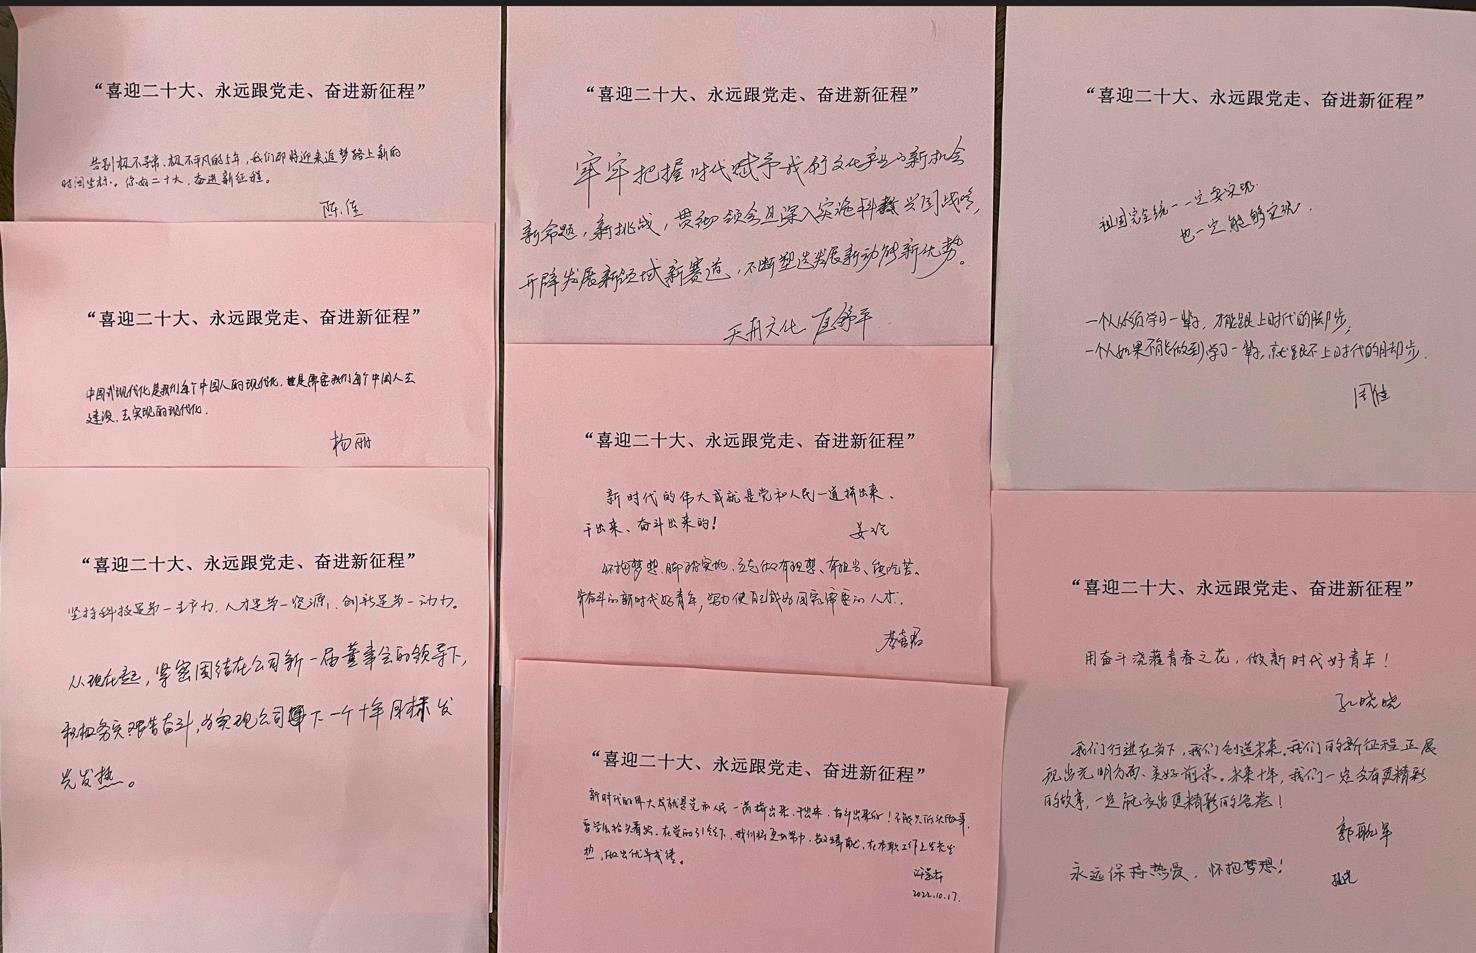 “喜迎二十大、永远跟党走、奋进新征程”
告别极不寻常、极不平凡的5年，我们即将迎来追梦路上新的
时间坐标。你好二十大，奋进新征程。
陈佳
“喜迎二十大、永远跟党走、奋进新征程”
中国式现代化是我们每个中国人的现代化，也是需要我们每个中国人去
建设、去实现的现代化。
杨丽
“喜迎二十大、永远跟党走、奋进新征程”
坚持科技是第一生产力、人才是第一资源、创新是第一动力。
从现在起，紧密团结在公司新一届董事会的领导下，
积极务实艰苦奋斗，为实现公司下一个十年目标发
光发热。
“喜迎二十大、永远跟党走、奋进新征程”
牢牢把握时代赋予我们文化产业的新机会
新命题，新挑战，贯彻领会且深入实施科教兴国战略，
开辟发展新领域新赛道，不断塑造发展新动能新优势。
天舟文化
“喜迎二十大、永远跟党走、奋进新征程”
新时代的伟大成就是党和人民一道拼出来、
干出来、奋斗出来的！
姜玲
怀抱梦想、脚踏实地，立志做有理想、有担当、能吃苦、
肯奋斗的新时代好青年，努力使自己成为国家需要的人才。
李喜君
“喜迎二十大、永远跟党走、奋进新征程”
新时代的伟大成就是党和人民一道拼出来、干出来、奋斗出来的！不能只低头做事，
要学会抬头看路。在党的引领下，我们将更加努力，在本职工作上发光发
热，做出优异成绩。
2022.10.17.
“喜迎二十大、永远跟党走、奋进新征程”
祖国完全统一一定要实现.
也一定能够实现.
一个人必须学习一辈子，才能跟上时代的脚步，
一个人如果不能做到学习一辈子，就跟不上时代的脚步.
周佳
“喜迎二十大、永远跟党走、奋进新征程”
用奋斗浇灌青春之花，做新时代好青年！
孔晓晓
我们行进在当下，我们创造未来。我们的新征程正展
现出光明方向、美好前景。未来十年，我们一定会有更精彩
的故事，一定能交出更精彩的答卷！
永远保持热爱，怀抱梦想！